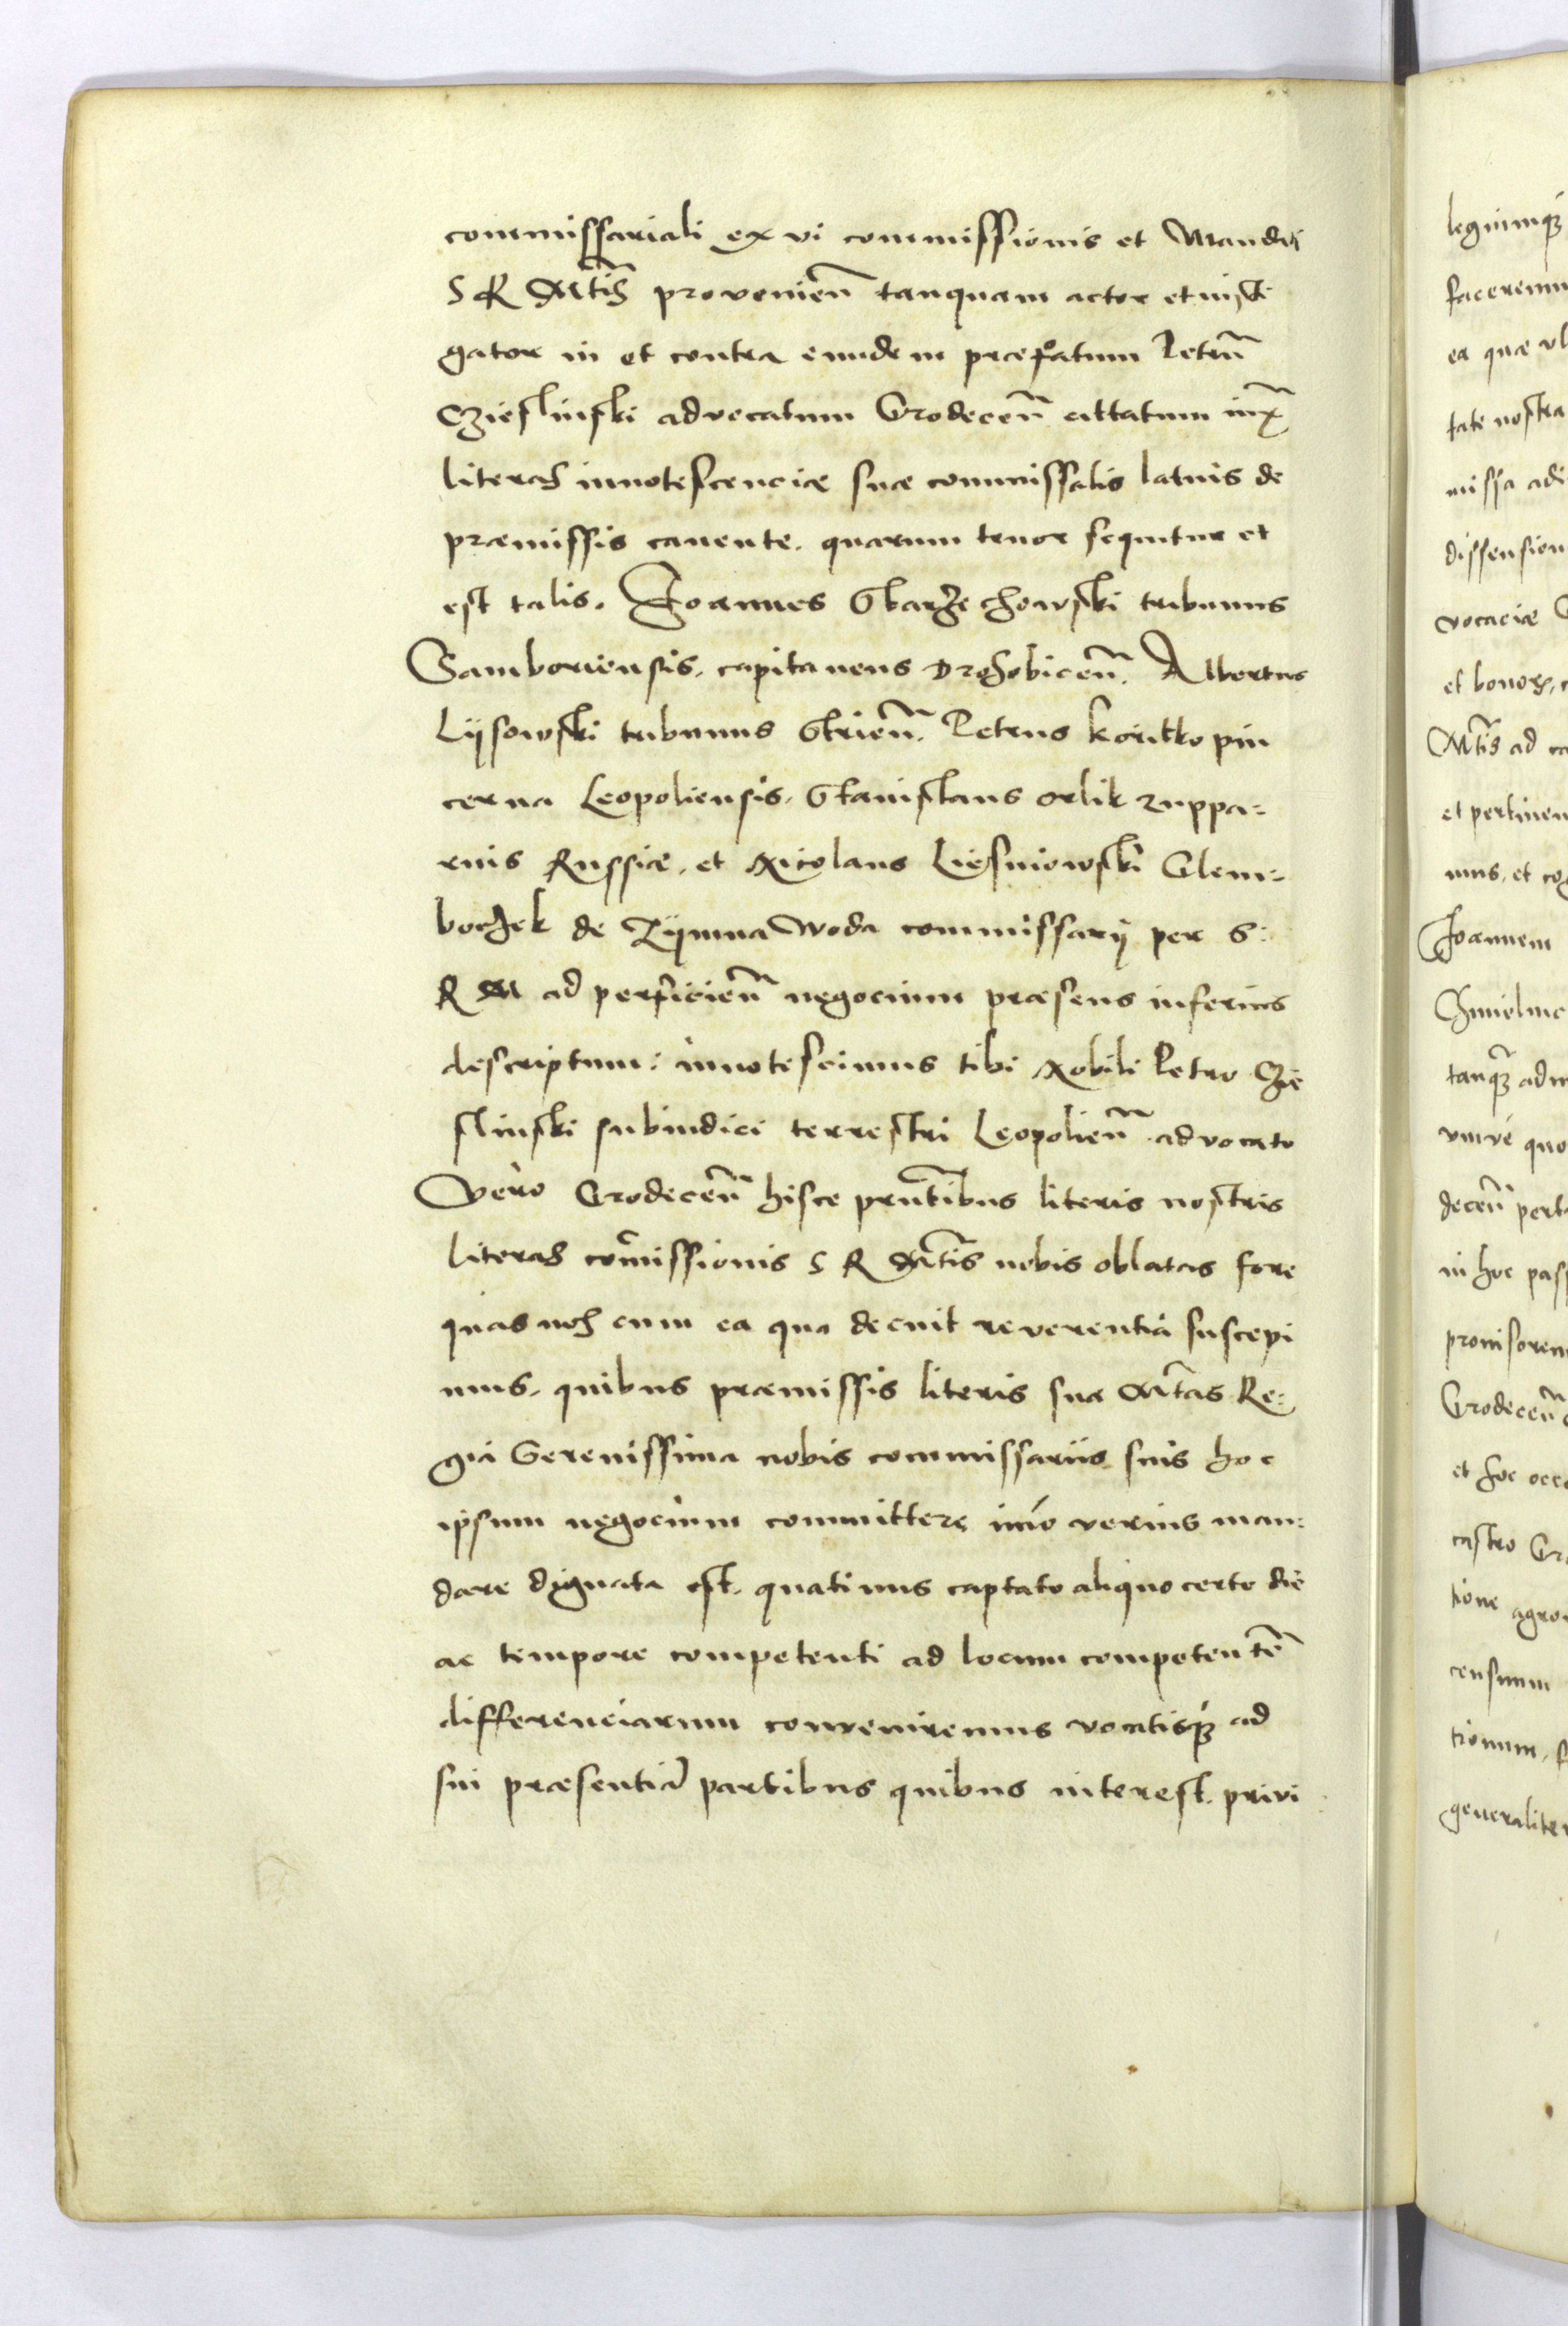 commissariali ex vi commissionis et Mandati
S R Mtis provenien̄ tanquam actor et insti
gator in et contra eundem præfatum Petrū
Czieslinski advocatum Grodecen̄ cittatum iux
literas innotescenciæ suæ commissalis latius de
præmissis cauente. quarum tenor sequitur et
est talis. Joannes Starzechowski tribunus
Samboriensis. capitaneus Drohobicen̄. Albertus
Lÿsowski tribunus Strien̄. Petrus koritko pin
cerna Leopoliensis. Stanislaus orlik zuppa=
rius Russiæ. et Nicolaus Liesniowski Glem=
boczek de Zÿmna Woda commissarÿ per S:
R M ad perficien̄ negocium præsens inferius
descriptum: innotescimus tibi Nobili Petro Czie
slinski subiudici terrestri Leopolien̄ advocato
Vero Grodecen̄ hisce prn̄tibus literis nostris
literas com̄issionis S R Mtis nobis oblatas fore
quas nos cum ea qua decuit reverentia suscepi
mus. quibus præmissis literis sua Mtas Re=
gia Serenissima nobis commissariis suis hoc
ipsum negocium committere imo verius man=
dare dignata est. quatinus captato aliquo certo die
ac tempore competenti ad locum competentē
differenciarum conveniremus vocatisq₃ ad
sui præsentiā partibus quibus interest. privi
legiumq₃
facerem
ea quæ
tate nostra
missa
dissension
vocaciæ
et bonor
Mtis ad
et pertinen
mus. et
Joannem
tanq₃
quo
decen̄
in hoc
provisorem
Grodecen̄
et hoc
castro
tione agro
censuum
tionum.
generaliter